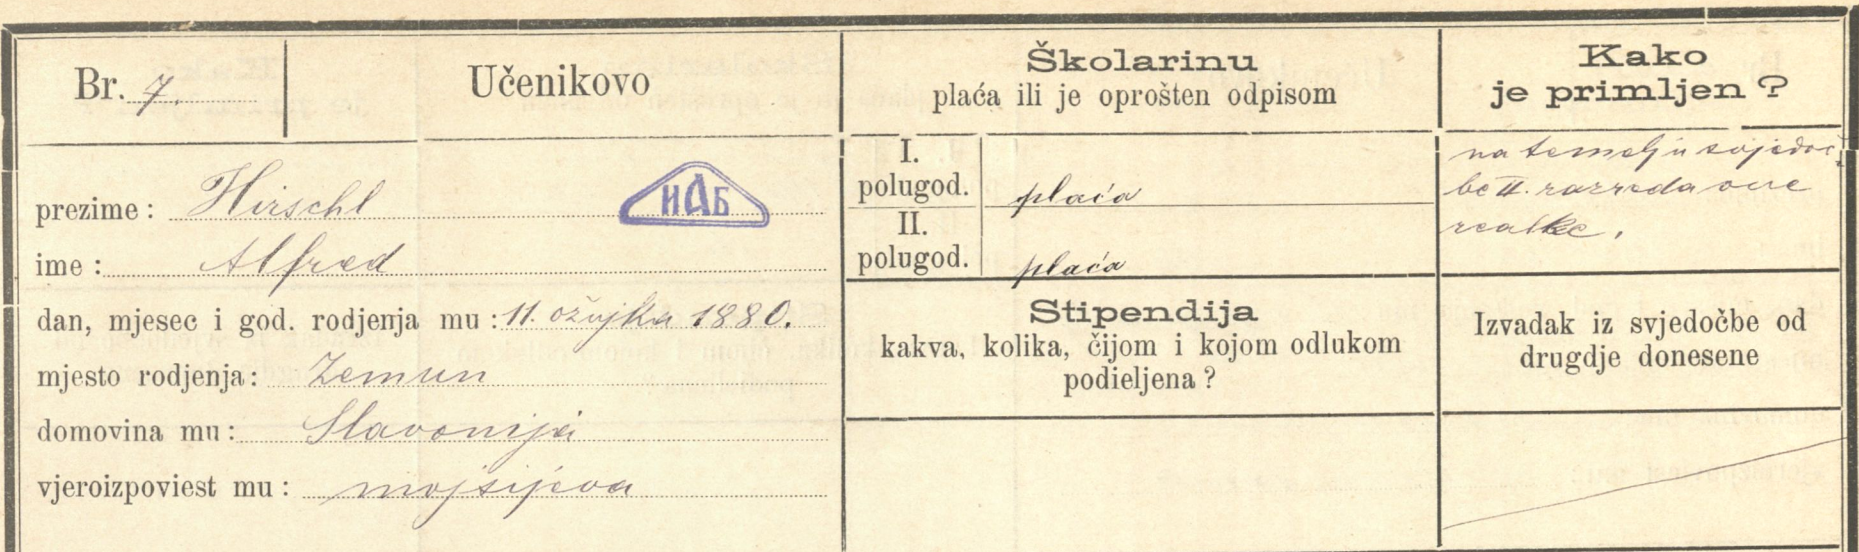 Br. 7.
Učenikovo
prezime: Hirschl
ИАБ
ime: Alfred
dan, mjesec i god. rodjenja mu: 11. ožujka 1880.
mjesto rodjenja: Zemun
domovina mu: Slavonija
vjeroizpoviest mu: mojsijeva
Školarinu
plaća ili je oprošten odpisom
I.
polugod. plaća
II.
polugod. plaća
Stipendija
kakva, kolika, čijom i kojom odlukom
podieljena?
Kako
je primljen?
na temelju svjedoč-
be II. razreda ove
realke.
Izvadak iz svjedočbe od
drugdje donesene